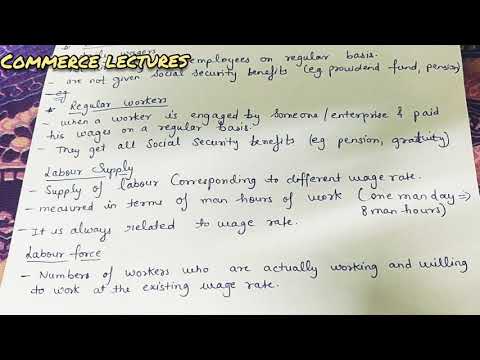 COMMERCE LECTURES
wagers
employees on regular basis.
are not given social security benefits (eg providend fund, pension)
- eg
* Regular workers
- when a worker is engaged by someone/enterprise & paid
his wages on a regular basis.
- They get all Social Security benefits (eg pension, gratuity)
Labour Supply
- Supply of labour Corresponding to different wage rate.
- measured in terms of man hours of work (one man day ⇒
8 man-hours)
- It is always related to wage rate.
Labour force
- Numbers of workers who are actually working and willing
to work at the existing wage rate.